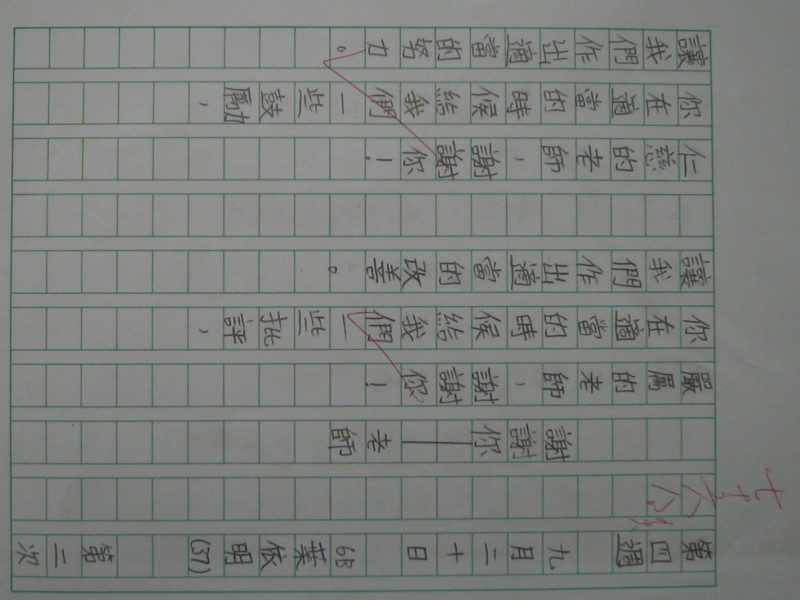 第四週 九月二十日 6B 葉依明 (37) 第二次
七十六分
謝謝你——老師
嚴厲的老師，謝謝你！
你在適當的時候給我們一些批評，
讓我們作出適當的改善。
仁慈的老師，謝謝你！
你在適當的時候給我們一些鼓勵，
讓我們作出適當的努力。